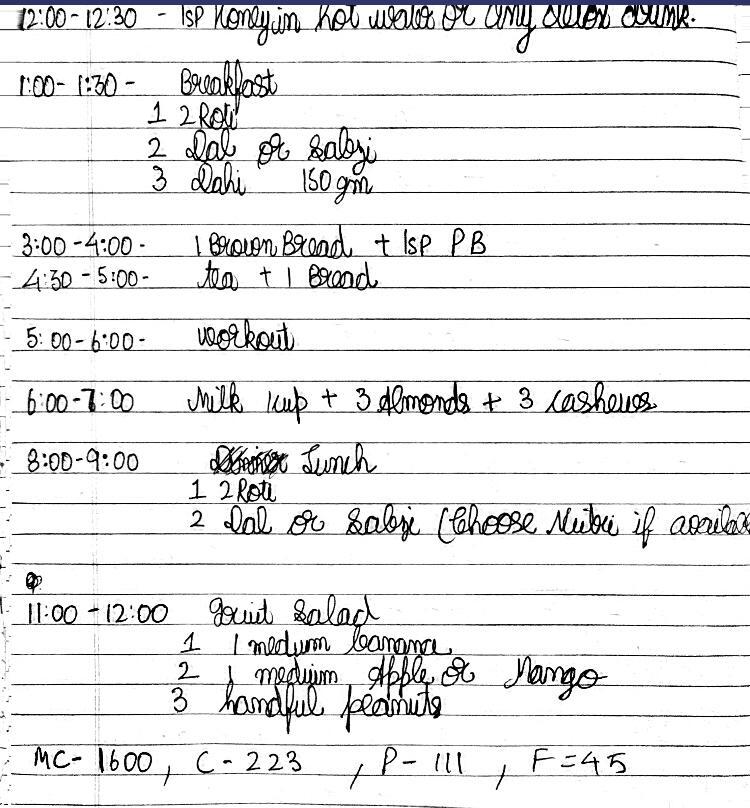 12:00-12:30 - 1sp Honey in hot water or any detox drink.
1:00-1:30- Breakfast
1 2 Roti
2 Dal or Sabzi
3 Dahi 150 gm
3:00-4:00- 1 Brown Bread + 1sp PB
4:30-5:00- tea + 1 Bread
5:00-6:00- workout
6:00-7:00 Milk 1cup + 3 Almonds + 3 Cashews
8:00-9:00 Lunch
1 2 Roti
2 Dal or Sabzi (Choose if
11:00-12:00 fruit Salad
1 1 medium banana
2 1 medium Apple or Mango
3 handful peanuts
MC- 1600, C-223, P-111, F=45